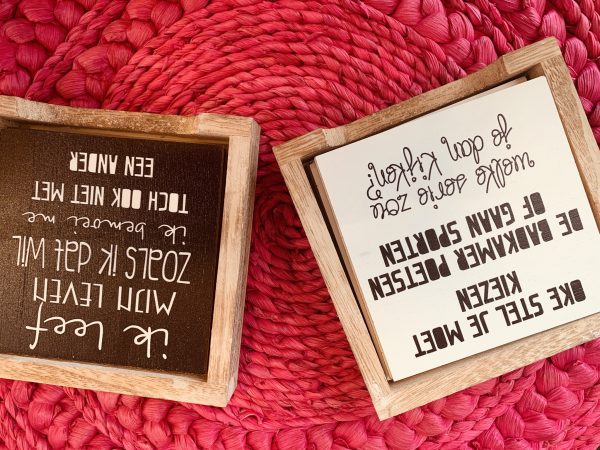 ik leef
MIJN LEVEN
ZOALS IK DAT WIL
ik bemoei me
TOCH OOK NIET MET
EEN ANDER
OKE STEL JE MOET
KIEZEN
DE BADKAMER POETSEN
OF GAAN SPORTEN
welke serie zou
je dan kijken?